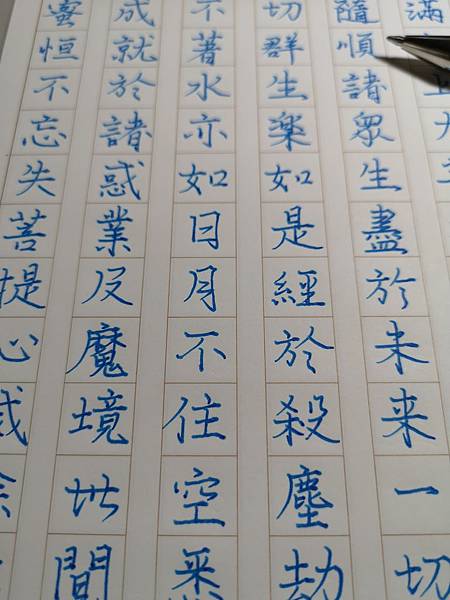 滿
隨順諸衆生盡於未来一切
切群生楽如是經於殺塵劫
不著水亦如日月不住空悉
成就於諸惑業及魔境世間
蜜恒不忘失菩提心